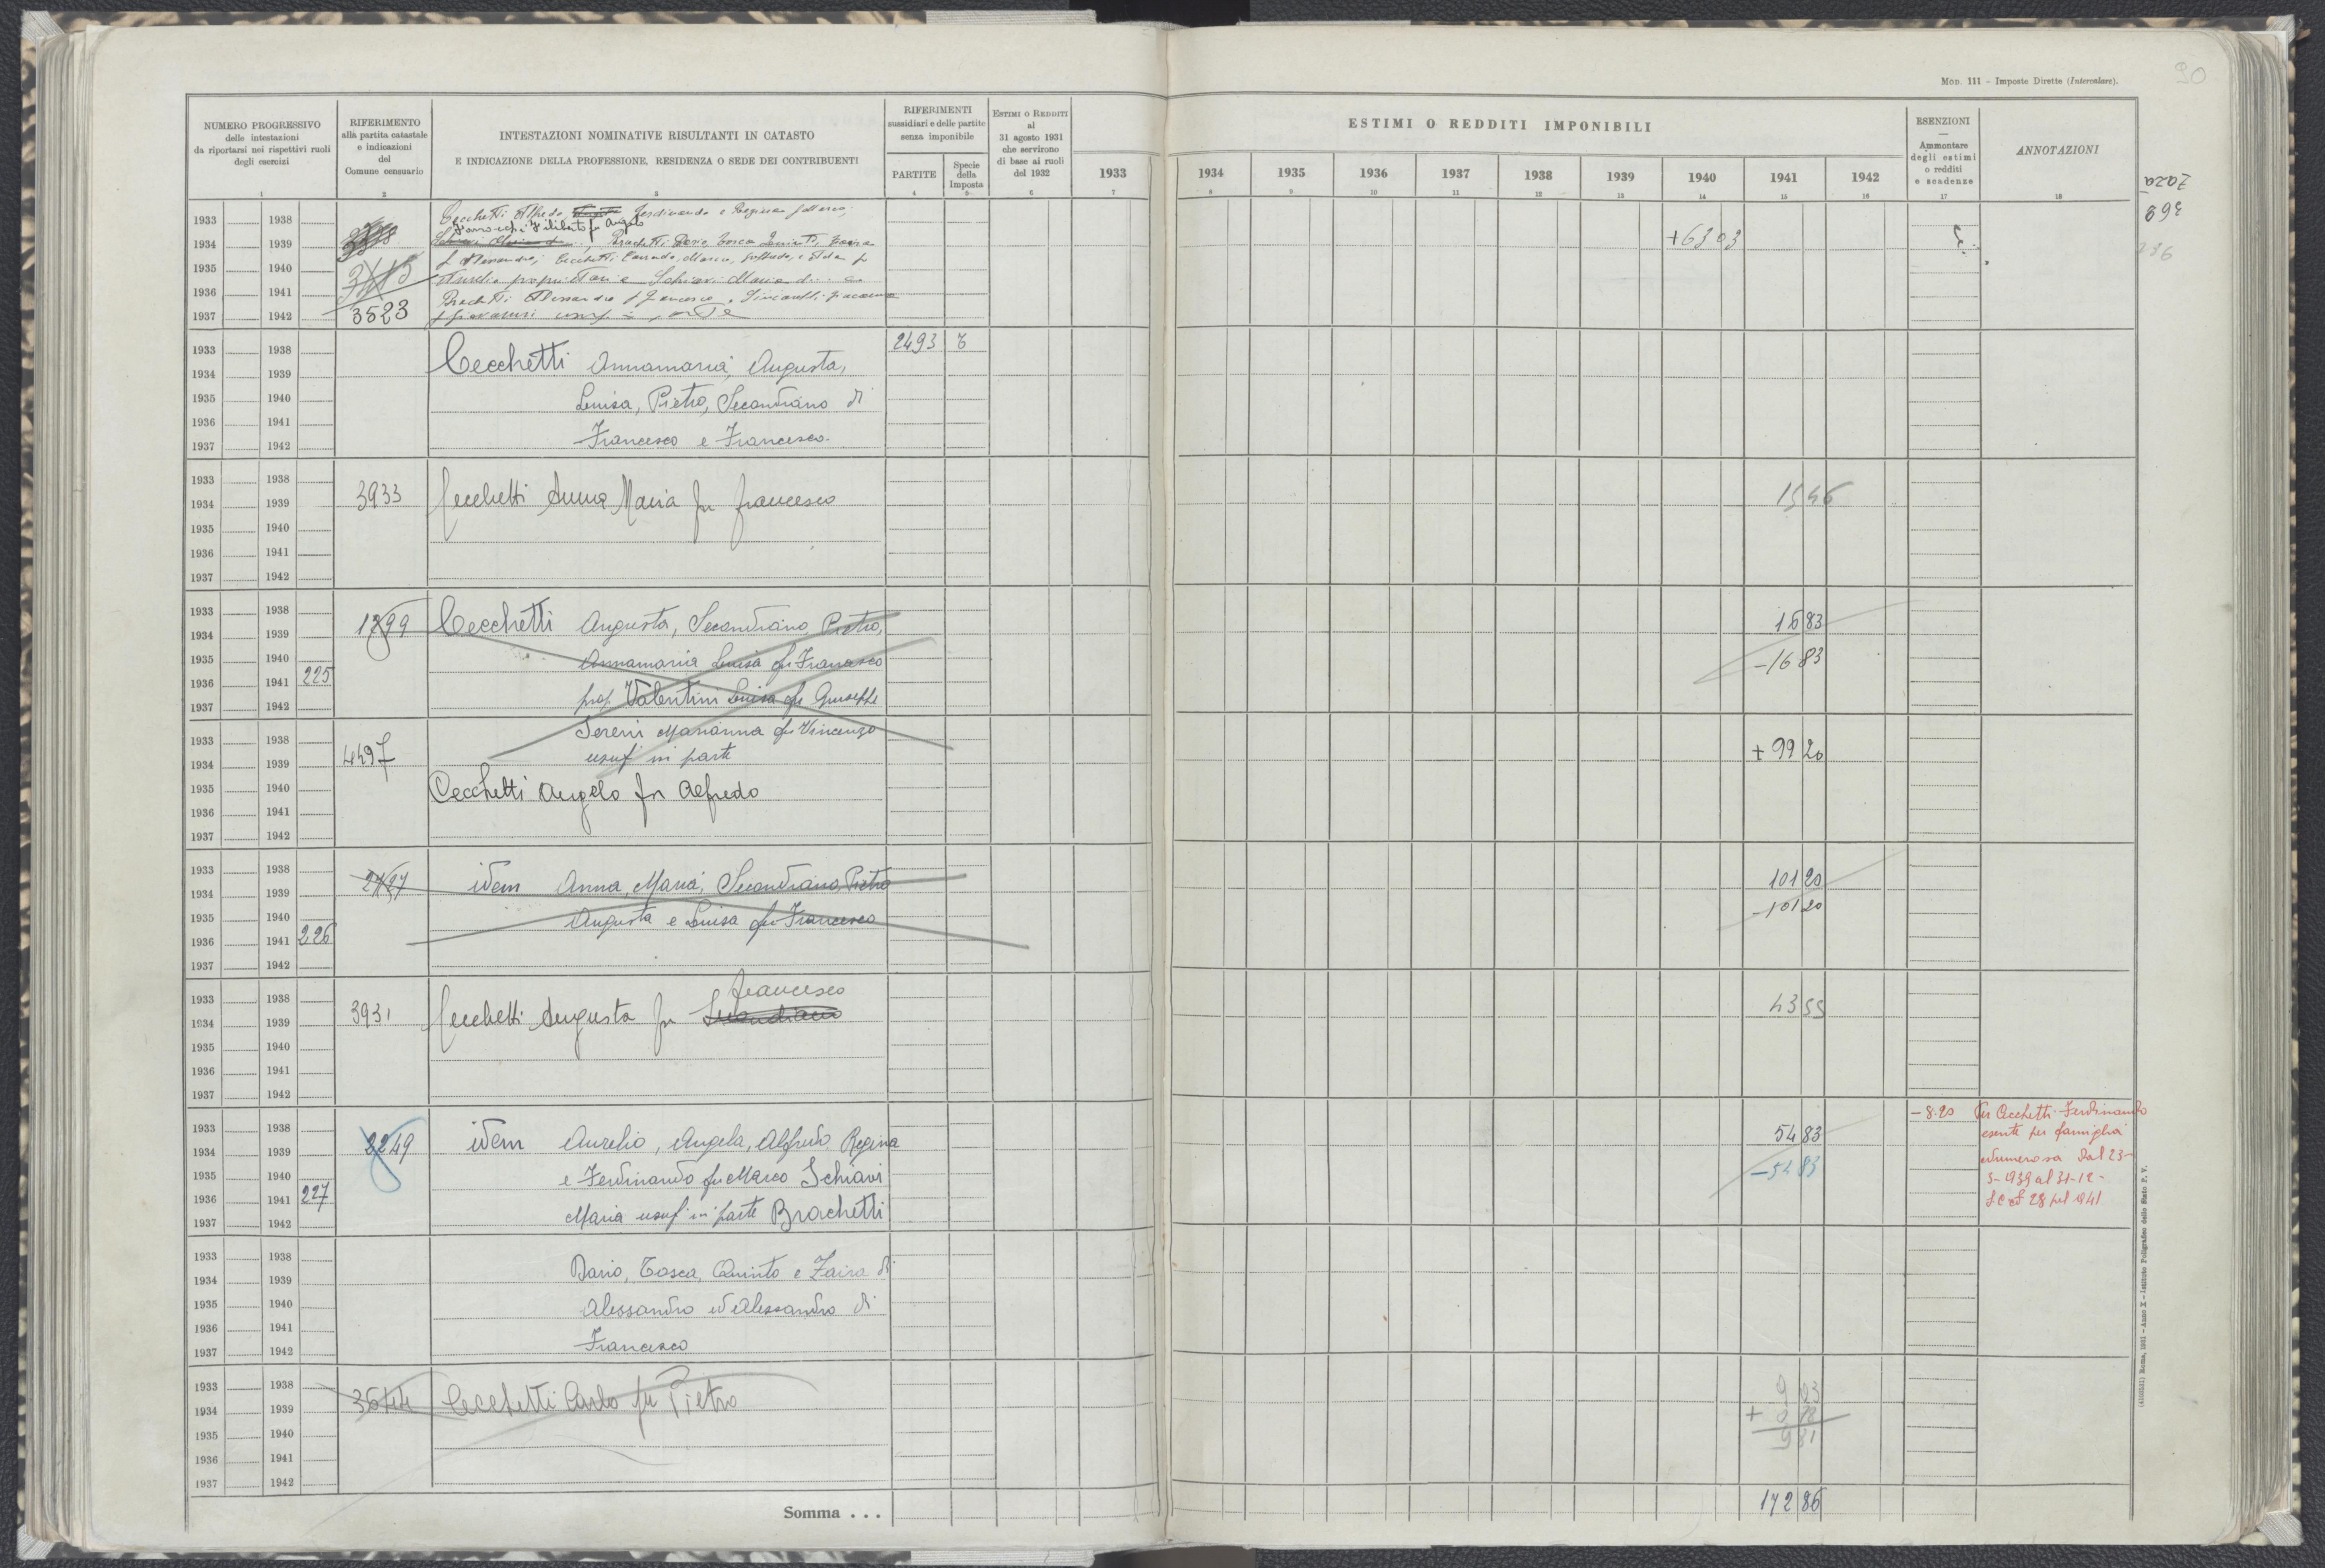 MOD. 111 – Imposte Dirette (Intercalare).
90
NUMERO PROGRESSIVO
delle intestazioni
da riportarsi nei rispettivi ruoli
degli esercizi
1
RIFERIMENTO
alla partita catastale
e indicazioni
del
Comune censuario
2
INTESTAZIONI NOMINATIVE RISULTANTI IN CATASTO
E INDICAZIONE DELLA PROFESSIONE, RESIDENZA O SEDE DEI CONTRIBUENTI
3
RIFERIMENTI
sussidiari e delle partite
senza imponibile
PARTITE
4
Specie
della
Imposta
5
ESTIMI O REDDITI
al
31 agosto 1931
che servirono
di base ai ruoli
del 1932
6
ESTIMI O REDDITI IMPONIBILI
1933 1934 1935 1936 1937 1938 1939 1940 1941 1942
7 8 9 10 11 12 13 14 15 16
ESENZIONI
—
Ammontare
degli estimi
o redditi
e scadenze
17
ANNOTAZIONI
18
Zaza
369
1933 1938
1934 1939
1935 1940
1936 1941
1937 1942
3523
Cecchetti Alfredo, Ferdinando e Regina fu Marco;
Filiberto fu Angelo
Brachetti Dario Tosca Quinto, Zaira
f Alessandro; Cecchetti Corrado, Marco, e Alda fu
Aurelio proprietari e Schiavi Maria
Brachetti Alessandro f Francesco,
f Giovanni usuf in parte
+63 03
1933 1938
1934 1939
1935 1940
1936 1941
1937 1942
2493
Cecchetti Annamaria, Augusta,
Luisa, Pietro, Secondiano di
Francesco e Francesco.
1933 1938
1934 1939
1935 1940
1936 1941
1937 1942
3933 Cecchetti Anna Maria fu Francesco
15 46
1933 1938
1934 1939
1935 1940
1936 1941 225
1937 1942
1299 Cecchetti Augusta, Secondiano Pietro,
Annamaria Luisa fu Francesco
prop Valentini Luisa fu Giuseppe
16 83
–16 83
1933 1938
1934 1939
1935 1940
1936 1941
1937 1942
Sereni Marianna fu Vincenzo
usuf in parte
4497
Cecchetti Angelo fu Alfredo
+ 99 20
1933 1938
1934 1939
1935 1940
1936 1941 226
1937 1942
2427 idem Anna, Maria, Secondiano, Pietro
Augusta e Luisa fu Francesco
101 20
–101 20
1933 1938
1934 1939
1935 1940
1936 1941
1937 1942
Francesco
3931 Cecchetti Augusta fu Secondiano
43 55
1933 1938
1934 1939
1935 1940
1936 1941 227
1937 1942
2249 idem Aurelio, Angela, Alfredo Regina
e Ferdinando fu Marco Schiavi
Maria usuf in parte Brachetti
54 83
–54 83
–8.20 Per Cecchetti Ferdinando
esente per famiglia
numerosa Dal 23–
5–939 al 31–12–
1933 1938
1934 1939
1935 1940
1936 1941
1937 1942
Dario, Tosca, Quinto e Zaira di
Alessandro ed Alessandro di
Francesco
1933 1938
1934 1939
1935 1940
1936 1941
1937 1942
3544 Cecchetti Carlo fu Pietro
9 03
+ 0 78
9 81
Somma . . .
172 86
(4102321) Roma, 1931 – Anno X – Istituto Poligrafico dello Stato P. V.